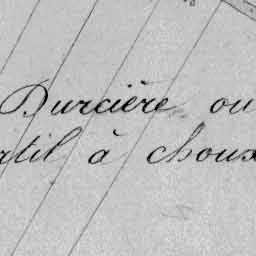 Durcière ou
rtil à choux